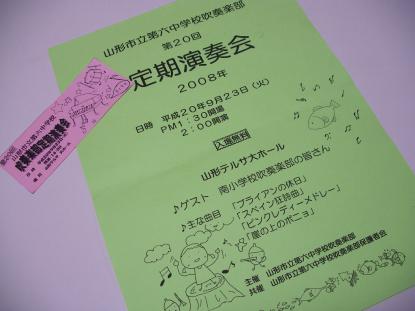 山形市立第六中学校吹奏楽部
第20回
定期演奏会
2008年
日時 平成20年9月23日(火)
PM1:30開場
2:00開演
入場無料
山形テルサ大ホール
♪ゲスト 南小学校吹奏楽部の皆さん
♪主な曲目 「ブライアンの休日」
「スペイン狂詩曲」
「ピンクレディーメドレー」
「崖の上のポニョ」
主催 山形市立第六中学校吹奏楽部
共催 山形市立第六中学校吹奏楽部保護者会
山形市立第六中学校
吹奏楽部定期演奏会